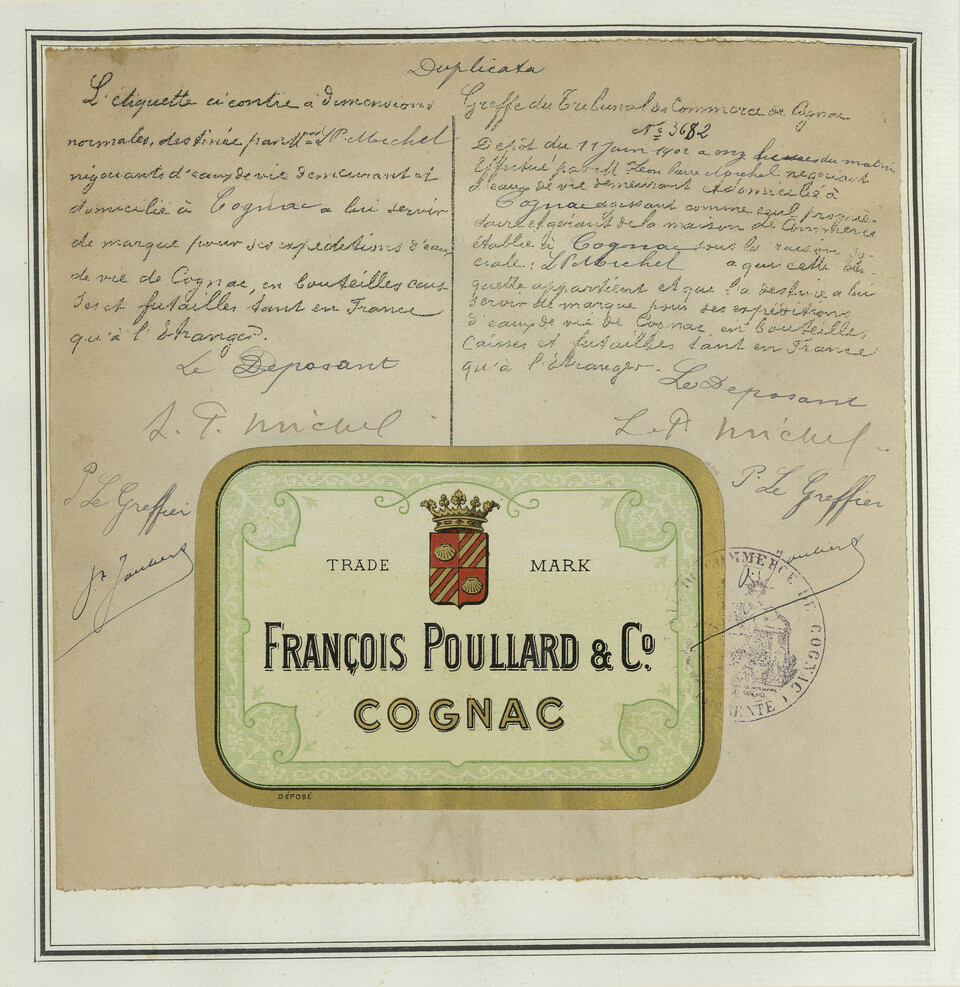 Duplicata
L'étiquette ci contre à dimensions
normales, destinée par Mr L P. Michel
négociants d'eaux de vie demeurant et
domicilié à Cognac a lui servir
de marque pour ses expéditions d'eaux
de vie de Cognac, en bouteilles cais
ses et futailles tant en France
qu'à l'Étranger.
Le Déposant
L. P. Michel
P. Le Greffier
Greffe du Tribunal de Commerce de Cognac
No 3682
Dépôt du 11 Juin 1902 a onz heures du matin
Effectué par M Léon Pierre Michel négociant
d'eaux de vie demeurant et domicilié à
Cognac agissant comme seul proprié-
taire et gérant de la maison de Commerce
établie à Cognac sous la raison so-
ciale: L P Michel a qui cette éti-
quette appartient et que la destine a lui
servir de marque pour ses expéditions
d'eaux de vie de Cognac, en bouteilles,
Caisses et futailles tant en France
qu'à l'étranger.
Le Déposant
L. P. Michel
P. Le Greffier
TRADE MARK
FRANÇOIS POULLARD & Co.
COGNAC
DÉPOSÉ
COMMERCE DE COGNAC